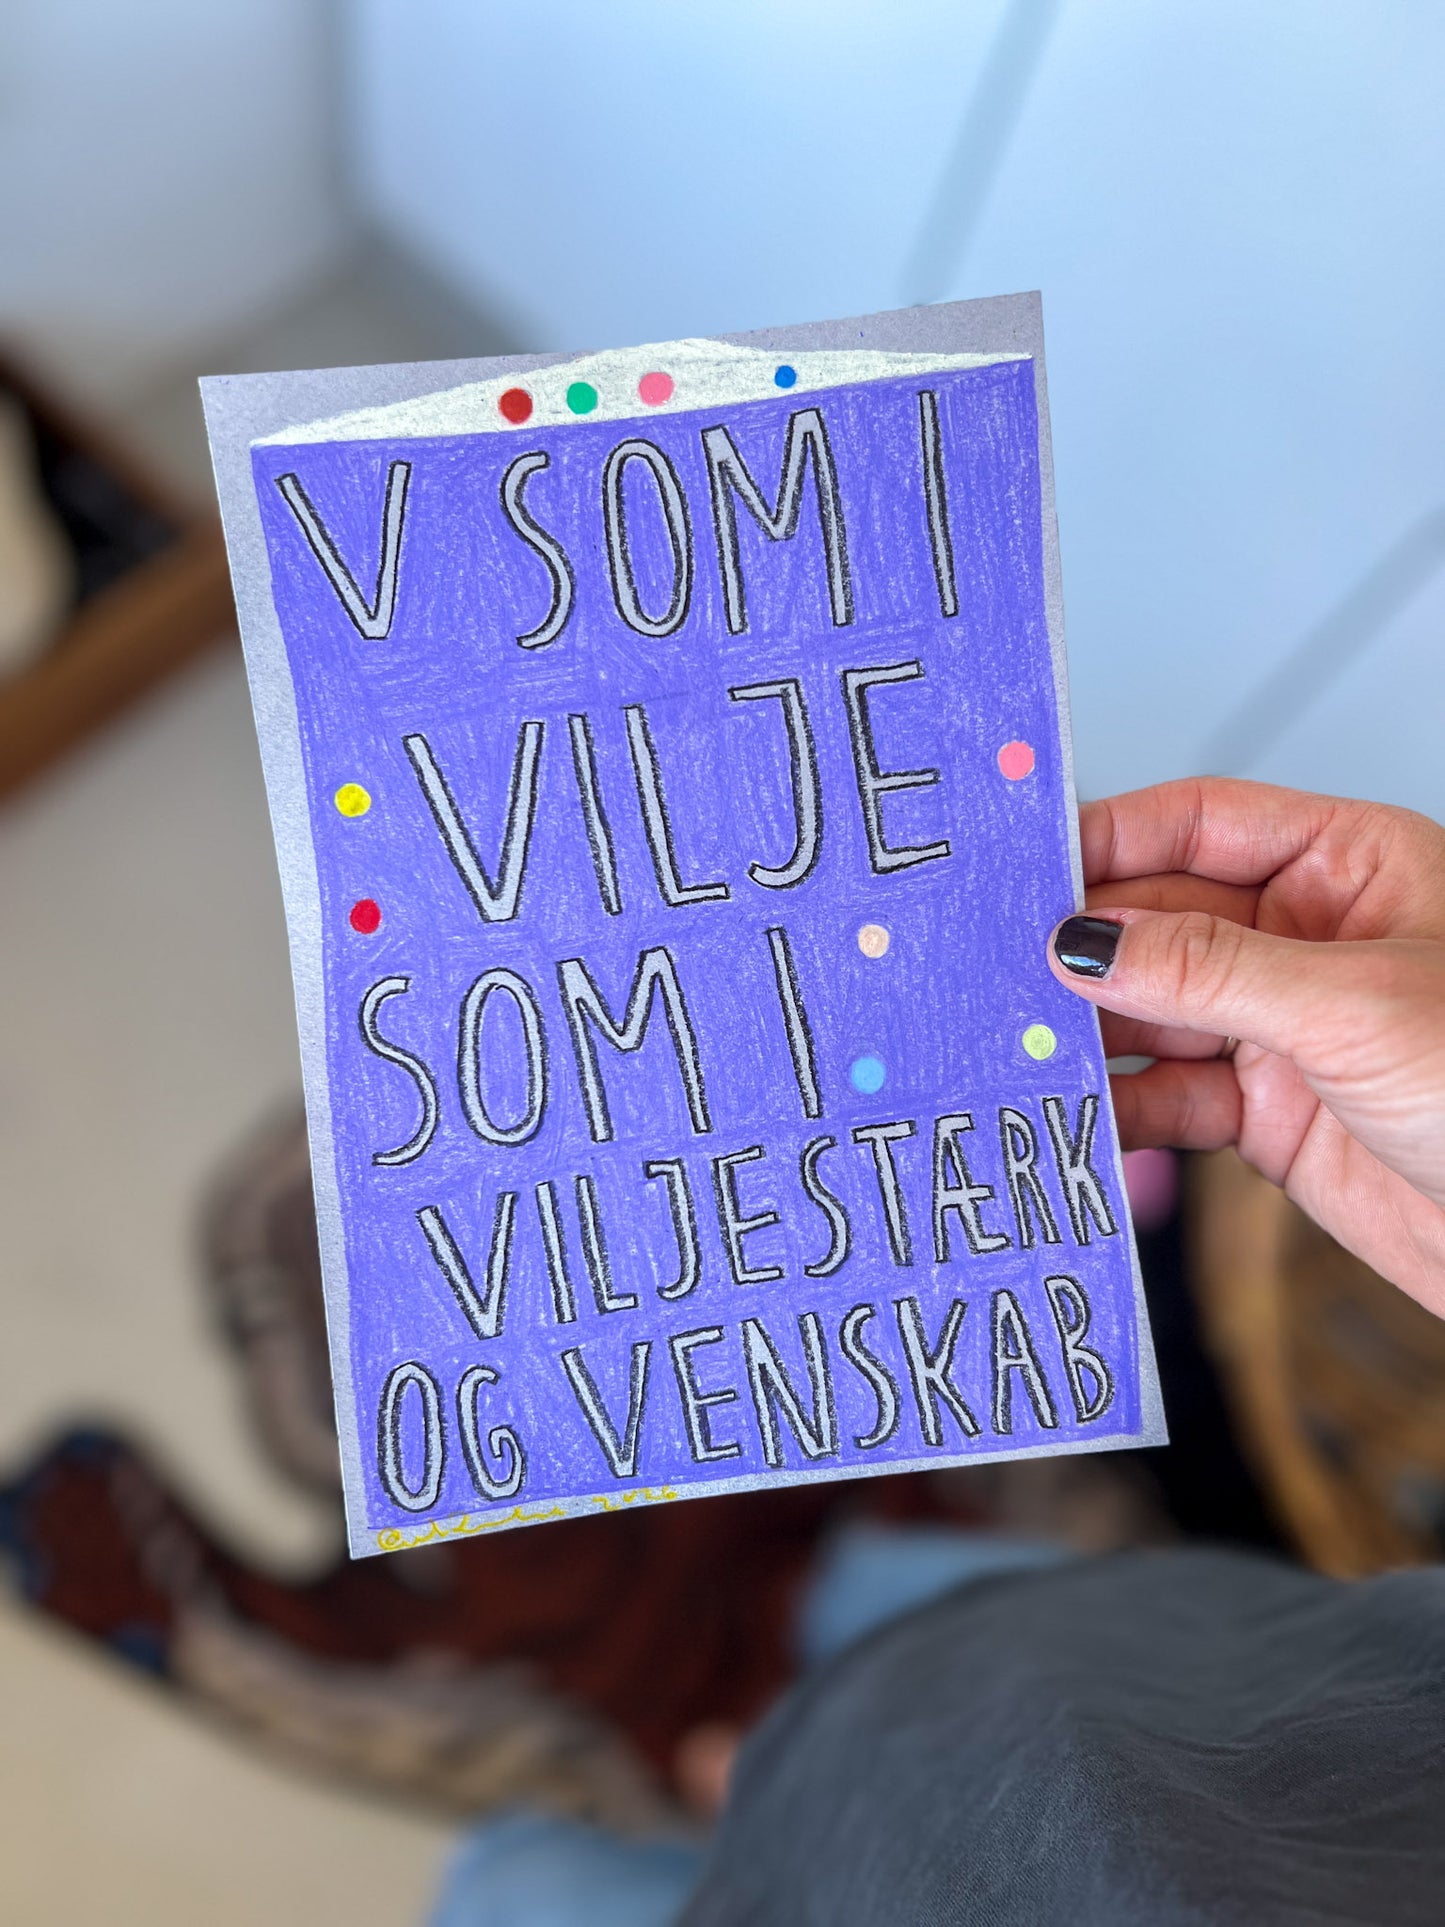 V SOM I
VILJE
SOM I
VILJESTÆRK
OG VENSKAB
2026